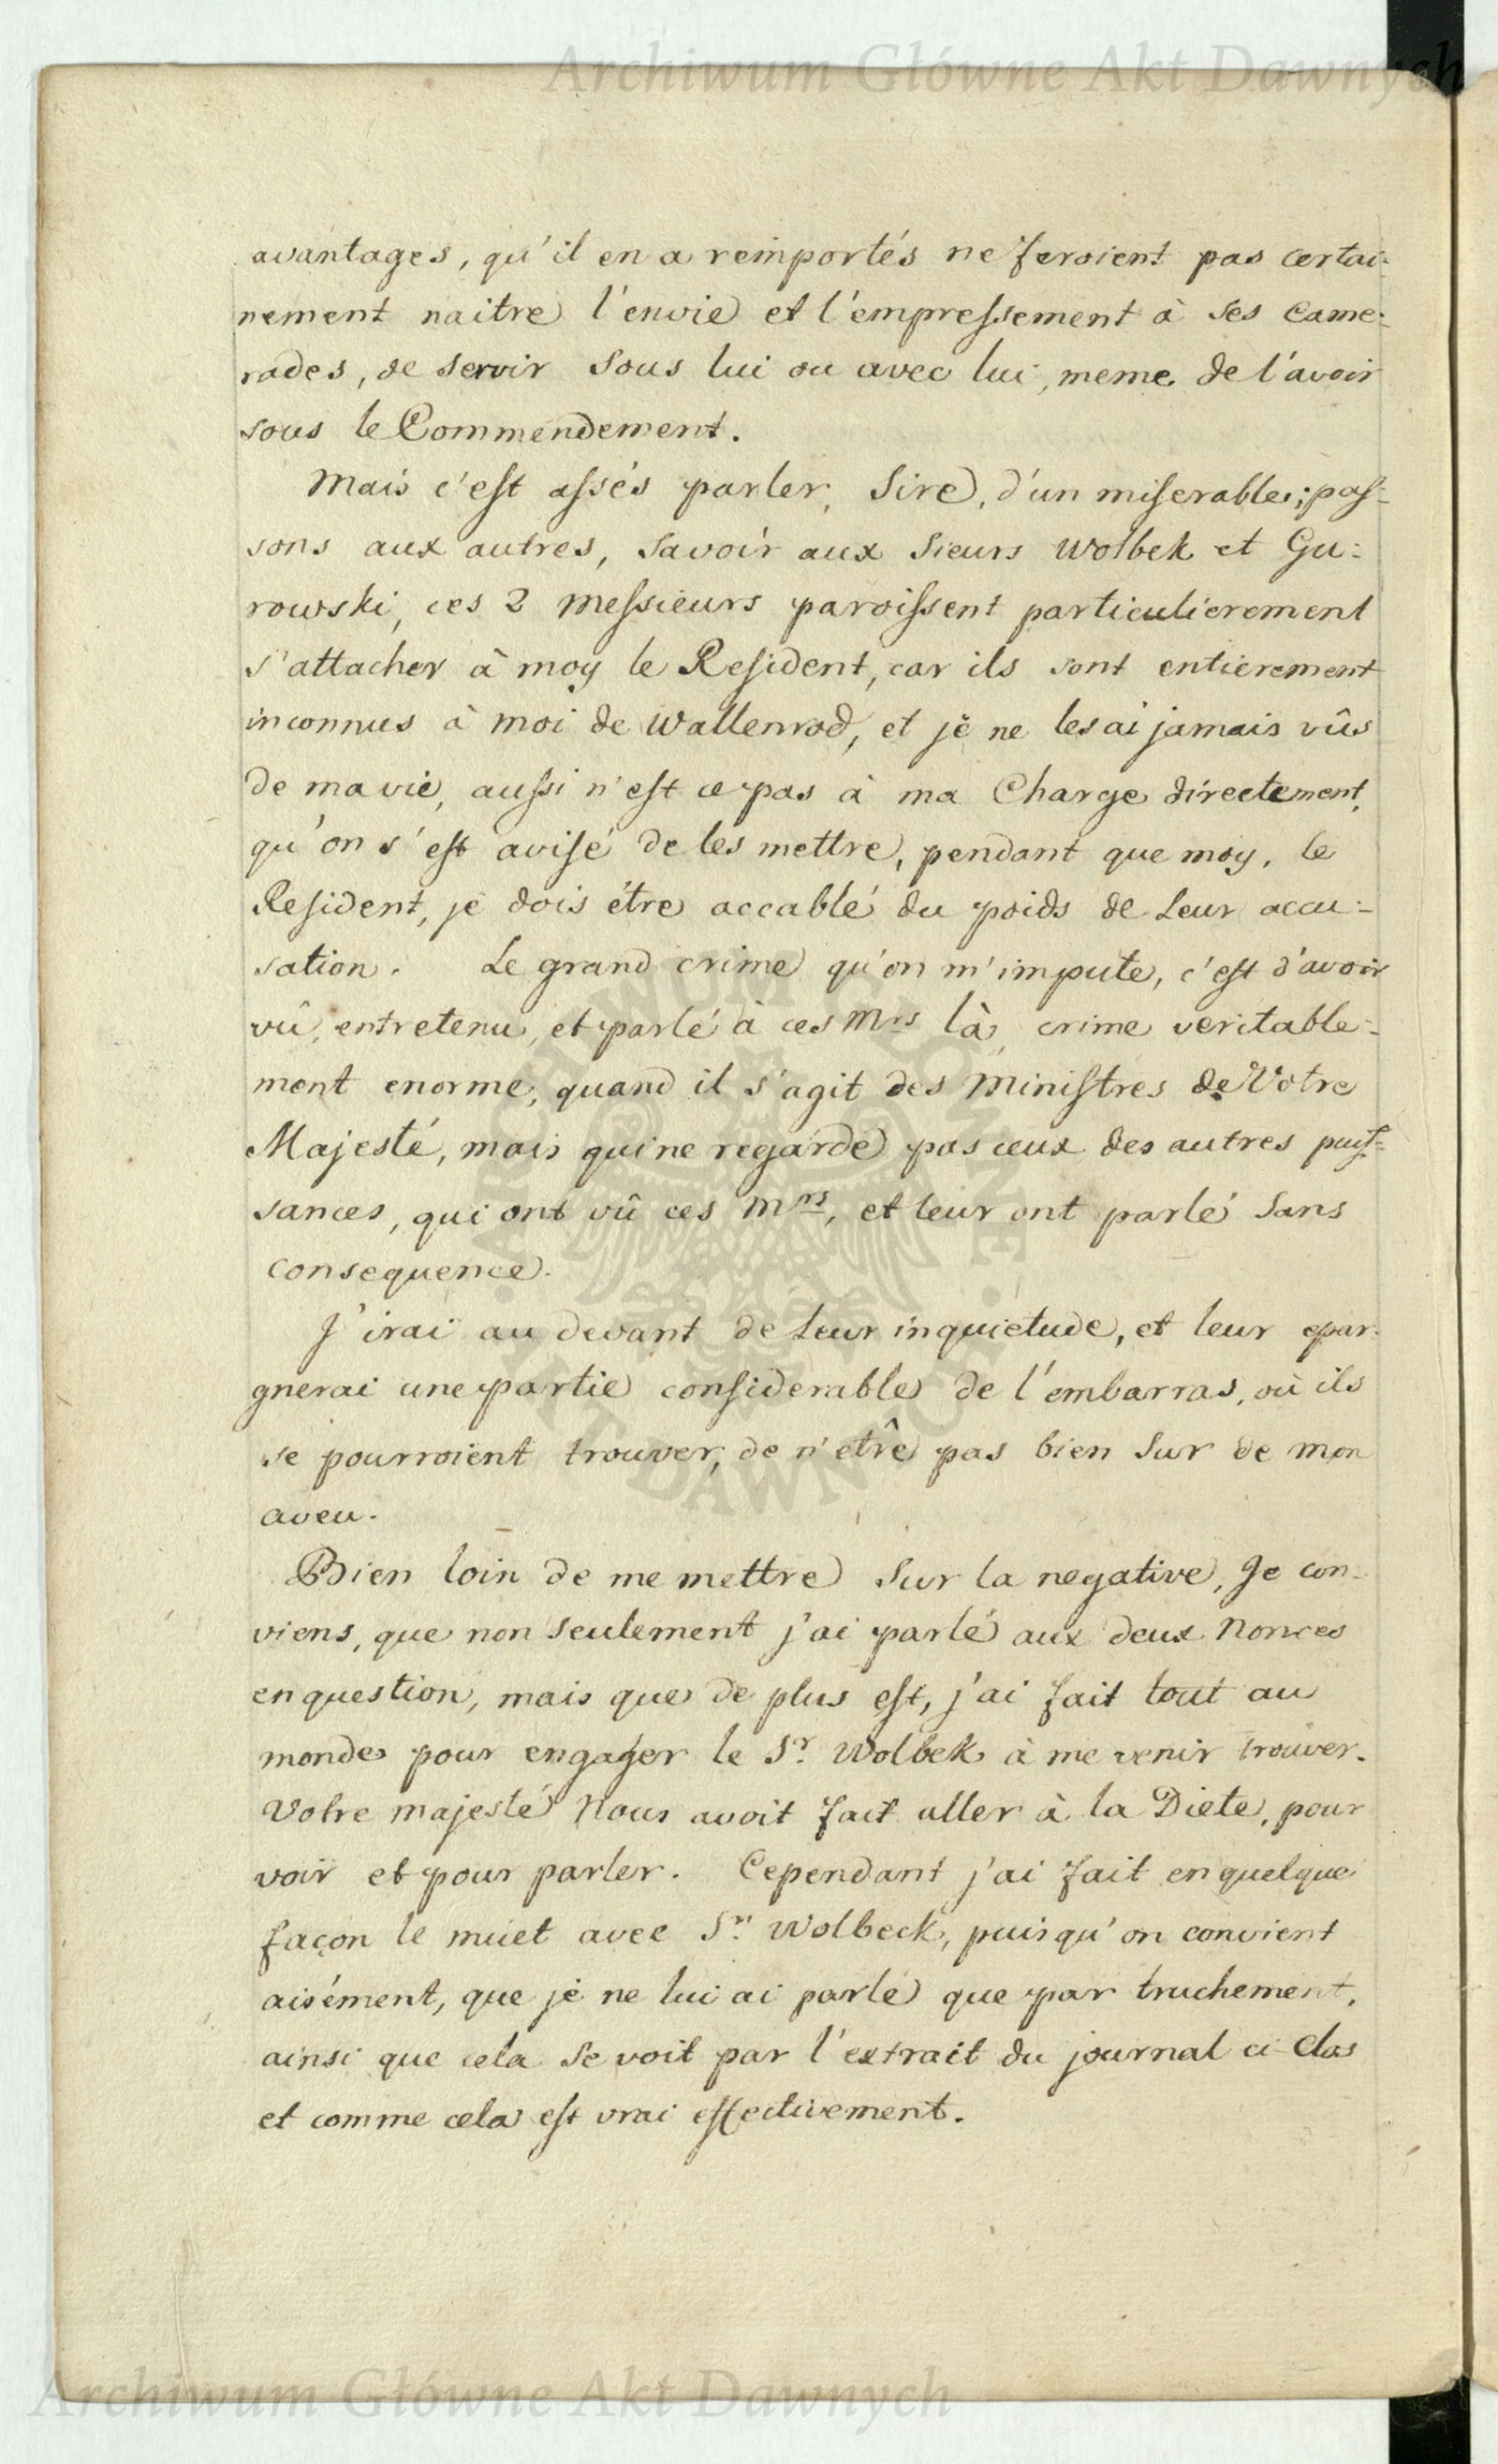 Archiwum Główne Akt Dawnych
avantages, qu'il en a reimportés ne feroient pas certai-
nement naitre l'envie et l'empressement à ses Came-
rades, de servir sous lui ou avec lui, meme de l'avoir
sous le Commendement.
Mais c'est assés parler, Sire, d'un miserable; pas-
sons aux autres, savoir aux Sieurs Wolbek et Gu-
rowski, ces 2 Messieurs paroissent particulierement
s'attacher à moy le Resident, car ils sont entierement
inconnus à moi de Wallenrod, et je ne les ai jamais vûs
de ma vie, aussi n'est ce pas à ma Charge directement,
qu'on s'est avisé de les mettre, pendant que moy, le
Resident, je dois étre accablé du poids de Leur accu-
sation. Le grand crime qu'on m'impute, c'est d'avoir
vû, entretenu, et parlé à ces Mrs là, crime veritable-
ment enorme, quand il s'agit des Ministres de Votre
Majesté, mais qui ne regarde pas ceux des autres puis-
sances, qui ont vû ces Mrs, et leur ont parlé sans
consequence.
J'irai au devant de Leur inquietude, et leur epar-
gnerai une partie considerable de l'embarras, où ils
se pourroient trouver, de n'etre pas bien sur de mon
aveu.
Bien loin de me mettre sur la negative, Je con-
viens, que non seulement j'ai parlé aux deux Nonces
en question, mais que de plus est, j'ai fait tout au
monde pour engager le Sr. Wolbek à me venir trouver.
Votre majesté Nous avoit fait aller à la Diete, pour
voir et pour parler. Cependant j'ai fait en quelque
façon le muet avec Sr. Wolbeck, puisqu'on convient
aisément, que je ne lui ai parlé que par truchement,
ainsi que cela se voit par l'extrait du journal ci-Clos
et comme cela est vrai effectivement.
Archiwum Główne Akt Dawnych